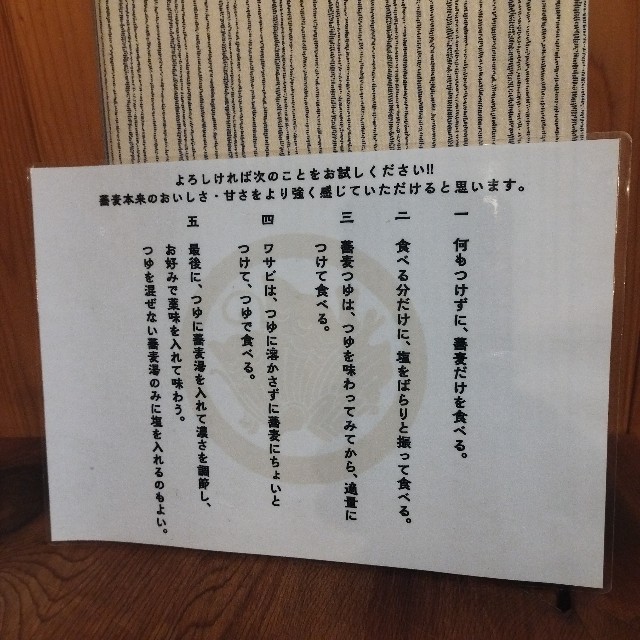 よろしければ次のことをお試しください!!
蕎麦本来のおいしさ・甘さをより強く感じていただけると思います。
一 何もつけずに、蕎麦だけを食べる。
二 食べる分だけに、塩をぱらりと振って食べる。
三 蕎麦つゆは、つゆを味わってみてから、適量に
つけて食べる。
四 ワサビは、つゆに溶かさずに蕎麦にちょいと
つけて、つゆで食べる。
五 最後に、つゆに蕎麦湯を入れて濃さを調節し、
お好みで薬味を入れて味わう。
つゆを混ぜない蕎麦湯のみに塩を入れるのもよい。